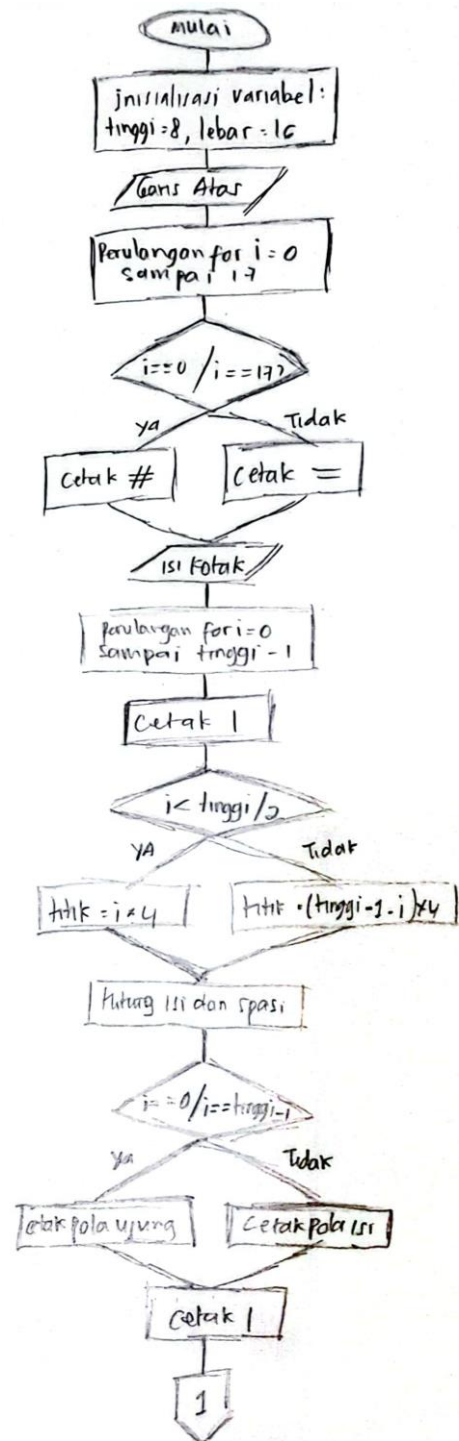 Mulai
inisialisasi variabel:
tinggi=8, lebar=16
Garis Atas
Perulangan for i=0
sampai 17
i==0 / i==17?
ya
Tidak
Cetak #
Cetak =
isi kotak
perulangan for i=0
sampai tinggi-1
Cetak |
i< tinggi/2
YA
Tidak
titik = i*4
titik =(tinggi-1-i)*4
Hitung isi dan spasi
i==0/i==tinggi-1
ya
Tidak
cetak pola ujung
Cetak pola isi
cetak |
1